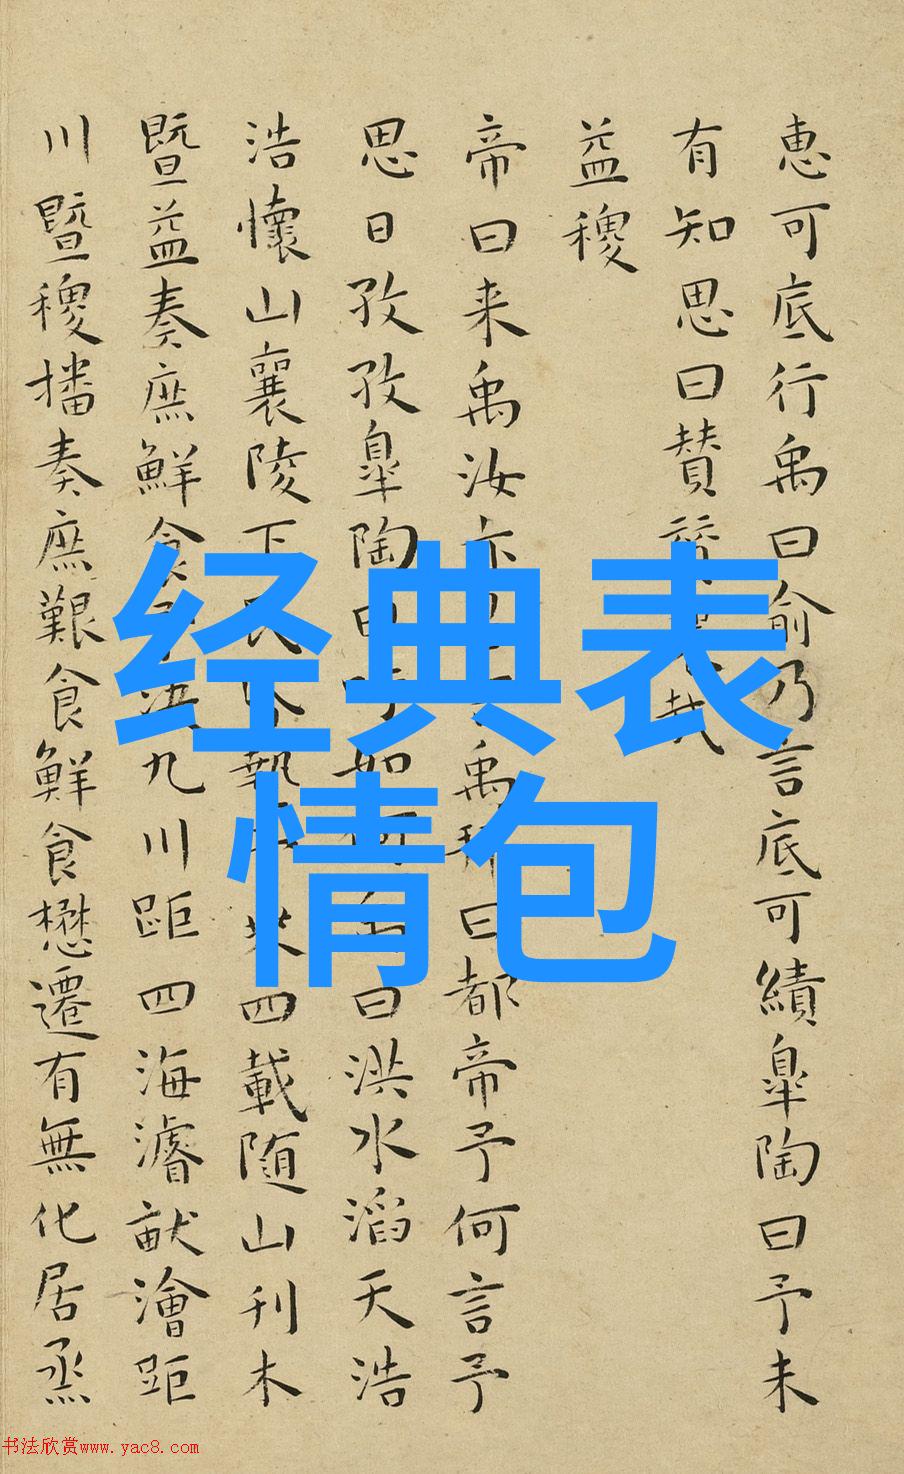 惠可底行禹曰俞乃言底可績皐陶曰予未
有知思曰賛
益稷
帝曰来禹汝禹拜曰都帝予何言予
思日孜孜皐陶曰如曰洪水滔天浩
浩懷山襄陵下四載随山刊木
暨益奏庶鮮食九川距四海濬畎澮距
川暨稷播奏庶艱食鮮食懋遷有無化居烝
经典表
情包
书法欣赏www.yac8.com